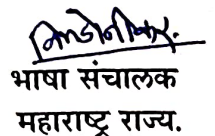 भाषा संचालक
महाराष्ट्र राज्य.